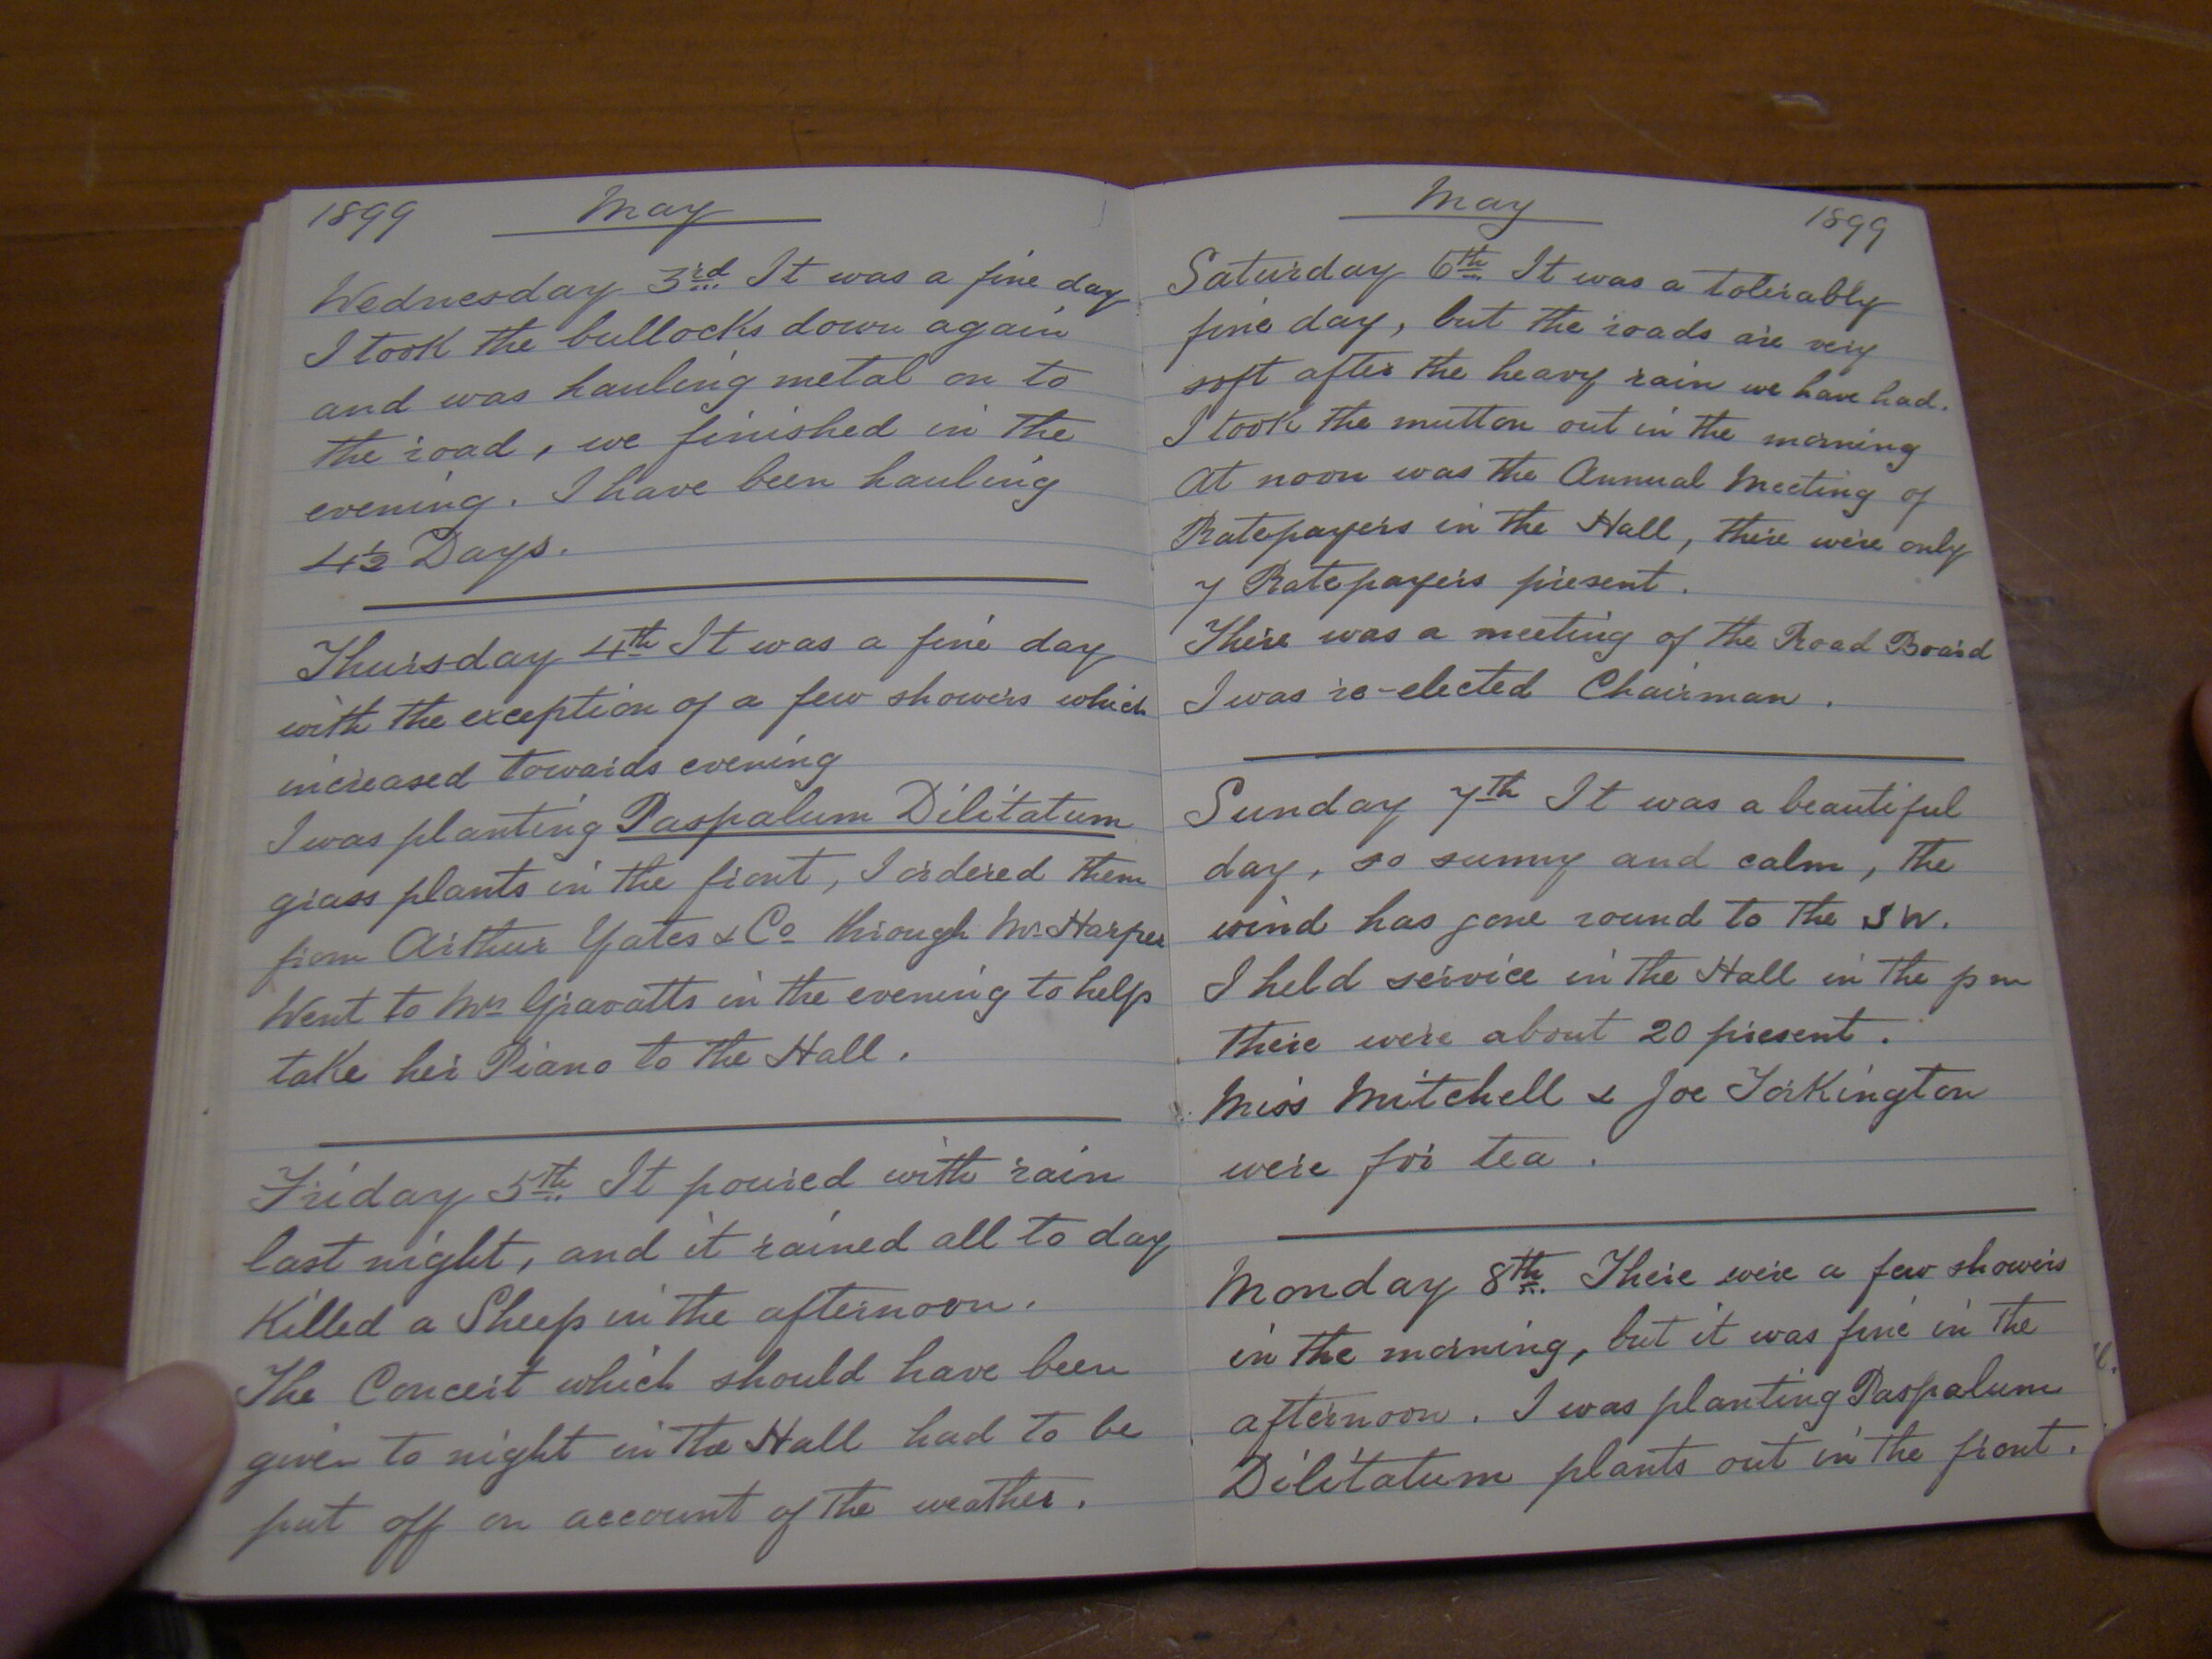 1899 May
Wednesday 3rd It was a fine day
I took the bullocks down again
and was hauling metal on to
the road, we finished in the
evening. I have been hauling
4½ Days.
Thursday 4th It was a fine day
with the exception of a few showers which
increased towards evening
I was planting Paspalum Dilitatum
grass plants in the front, I ordered them
from Arthur Yates & Co through Mr Harper
Went to Mrs Gravatts in the evening to help
take her Piano to the Hall.
Friday 5th It poured with rain
last night, and it rained all to day
Killed a Sheep in the afternoon.
The Concert which should have been
given to night in the Hall had to be
put off on account of the weather.
May 1899
Saturday 6th It was a tolerably
fine day, but the roads are very
soft after the heavy rain we have had.
I took the mutton out in the morning
At noon was the Annual Meeting of
Ratepayers in the Hall, there were only
7 Ratepayers present.
There was a meeting of the Road Board
I was re-elected Chairman.
Sunday 7th It was a beautiful
day, so sunny and calm, the
wind has gone round to the SW.
I held service in the Hall in the pm
there were about 20 present.
Miss Mitchell & Joe Torkington
were for tea.
Monday 8th There were a few showers
in the morning, but it was fine in the
afternoon. I was planting Paspalum
Dilitatum plants out in the front.